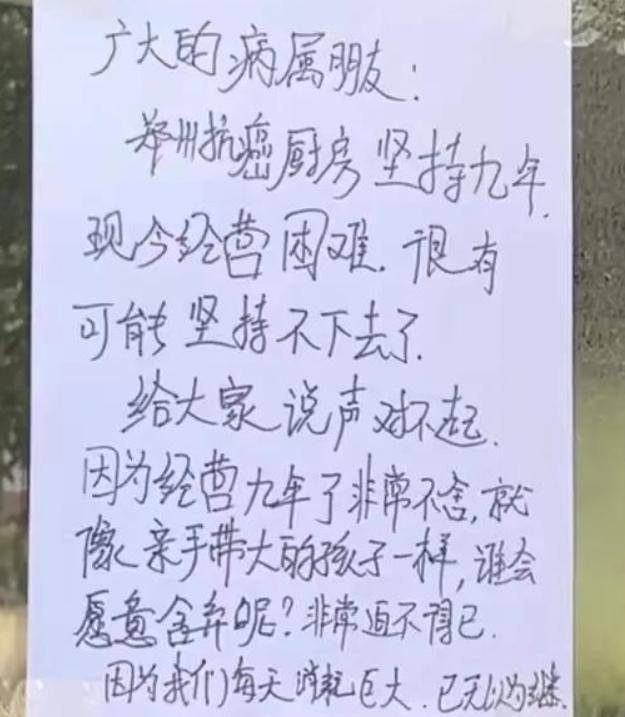 广大的病属朋友：
郑州抗癌厨房坚持九年.
现今经营困难.很有
可能坚持不下去了.
给大家说声对不起.
因为经营九年了非常不舍,就
像亲手带大的孩子一样,谁会
愿意舍弃呢?非常迫不得已.
因为我们每天消耗巨大.已无以为继.